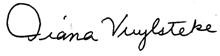 Diana Vuylsteke